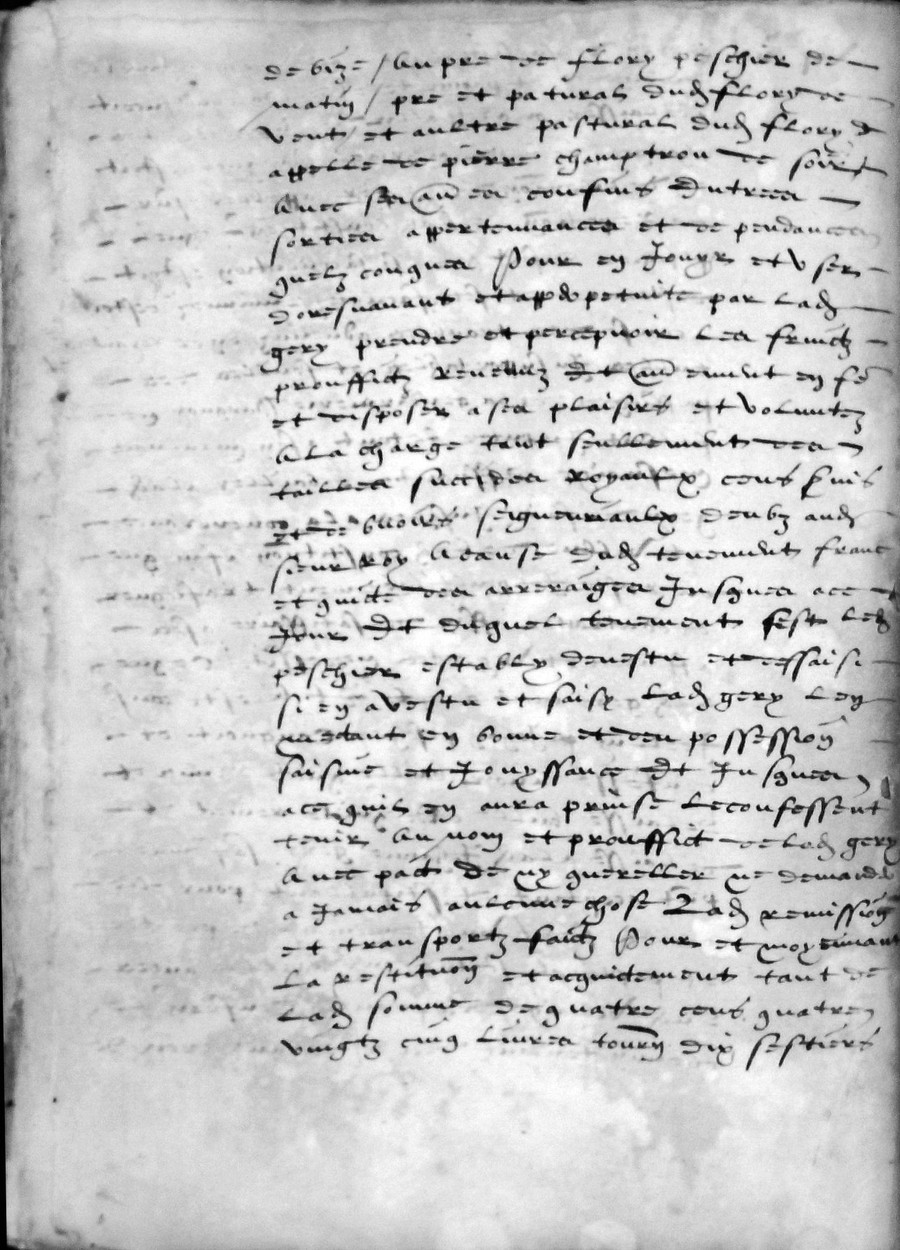 de bize / au pre de flory peschier de
matin / pre et patural dud flory de
vent / et aultre pastural dud flory
appelle de pierre champtrou de soir
avec ses au es confins entrees
sorties appertenances et dependances
quelz conques Pour en Jouyr et user
doresnavant et app petuite par lad
gery prendre et percepvoir les fruictz
prouffictz revenuz et au ement en fe
et disposer a ses plaisirs et voluntez
a la charge tant seullement des
tailles succides royaulx cens
et de seigneuriaulx deubz aud
sieur roy a cause dud tenement franc
et quicte des arreraiges Jusques a ce
Jour Et duquel tenement sest led
peschier estably devestu et dessaisi
si en a vestu et saisy lad gery len
mectant en bonne et deu possession
saisine et Jouyssance Et Jusques
a ce quil en aura prinse le confessent
tenir au nom et prouffict de lad gery
avec pact de ny quereller ne demander
a Jamais aulcune chose Lad remission
et transportz faictz Pour et moyennant
la restitution et acquictement tant de
lad somme de quatre cens quatre
vingtz cinq livres tourn dix sestiers